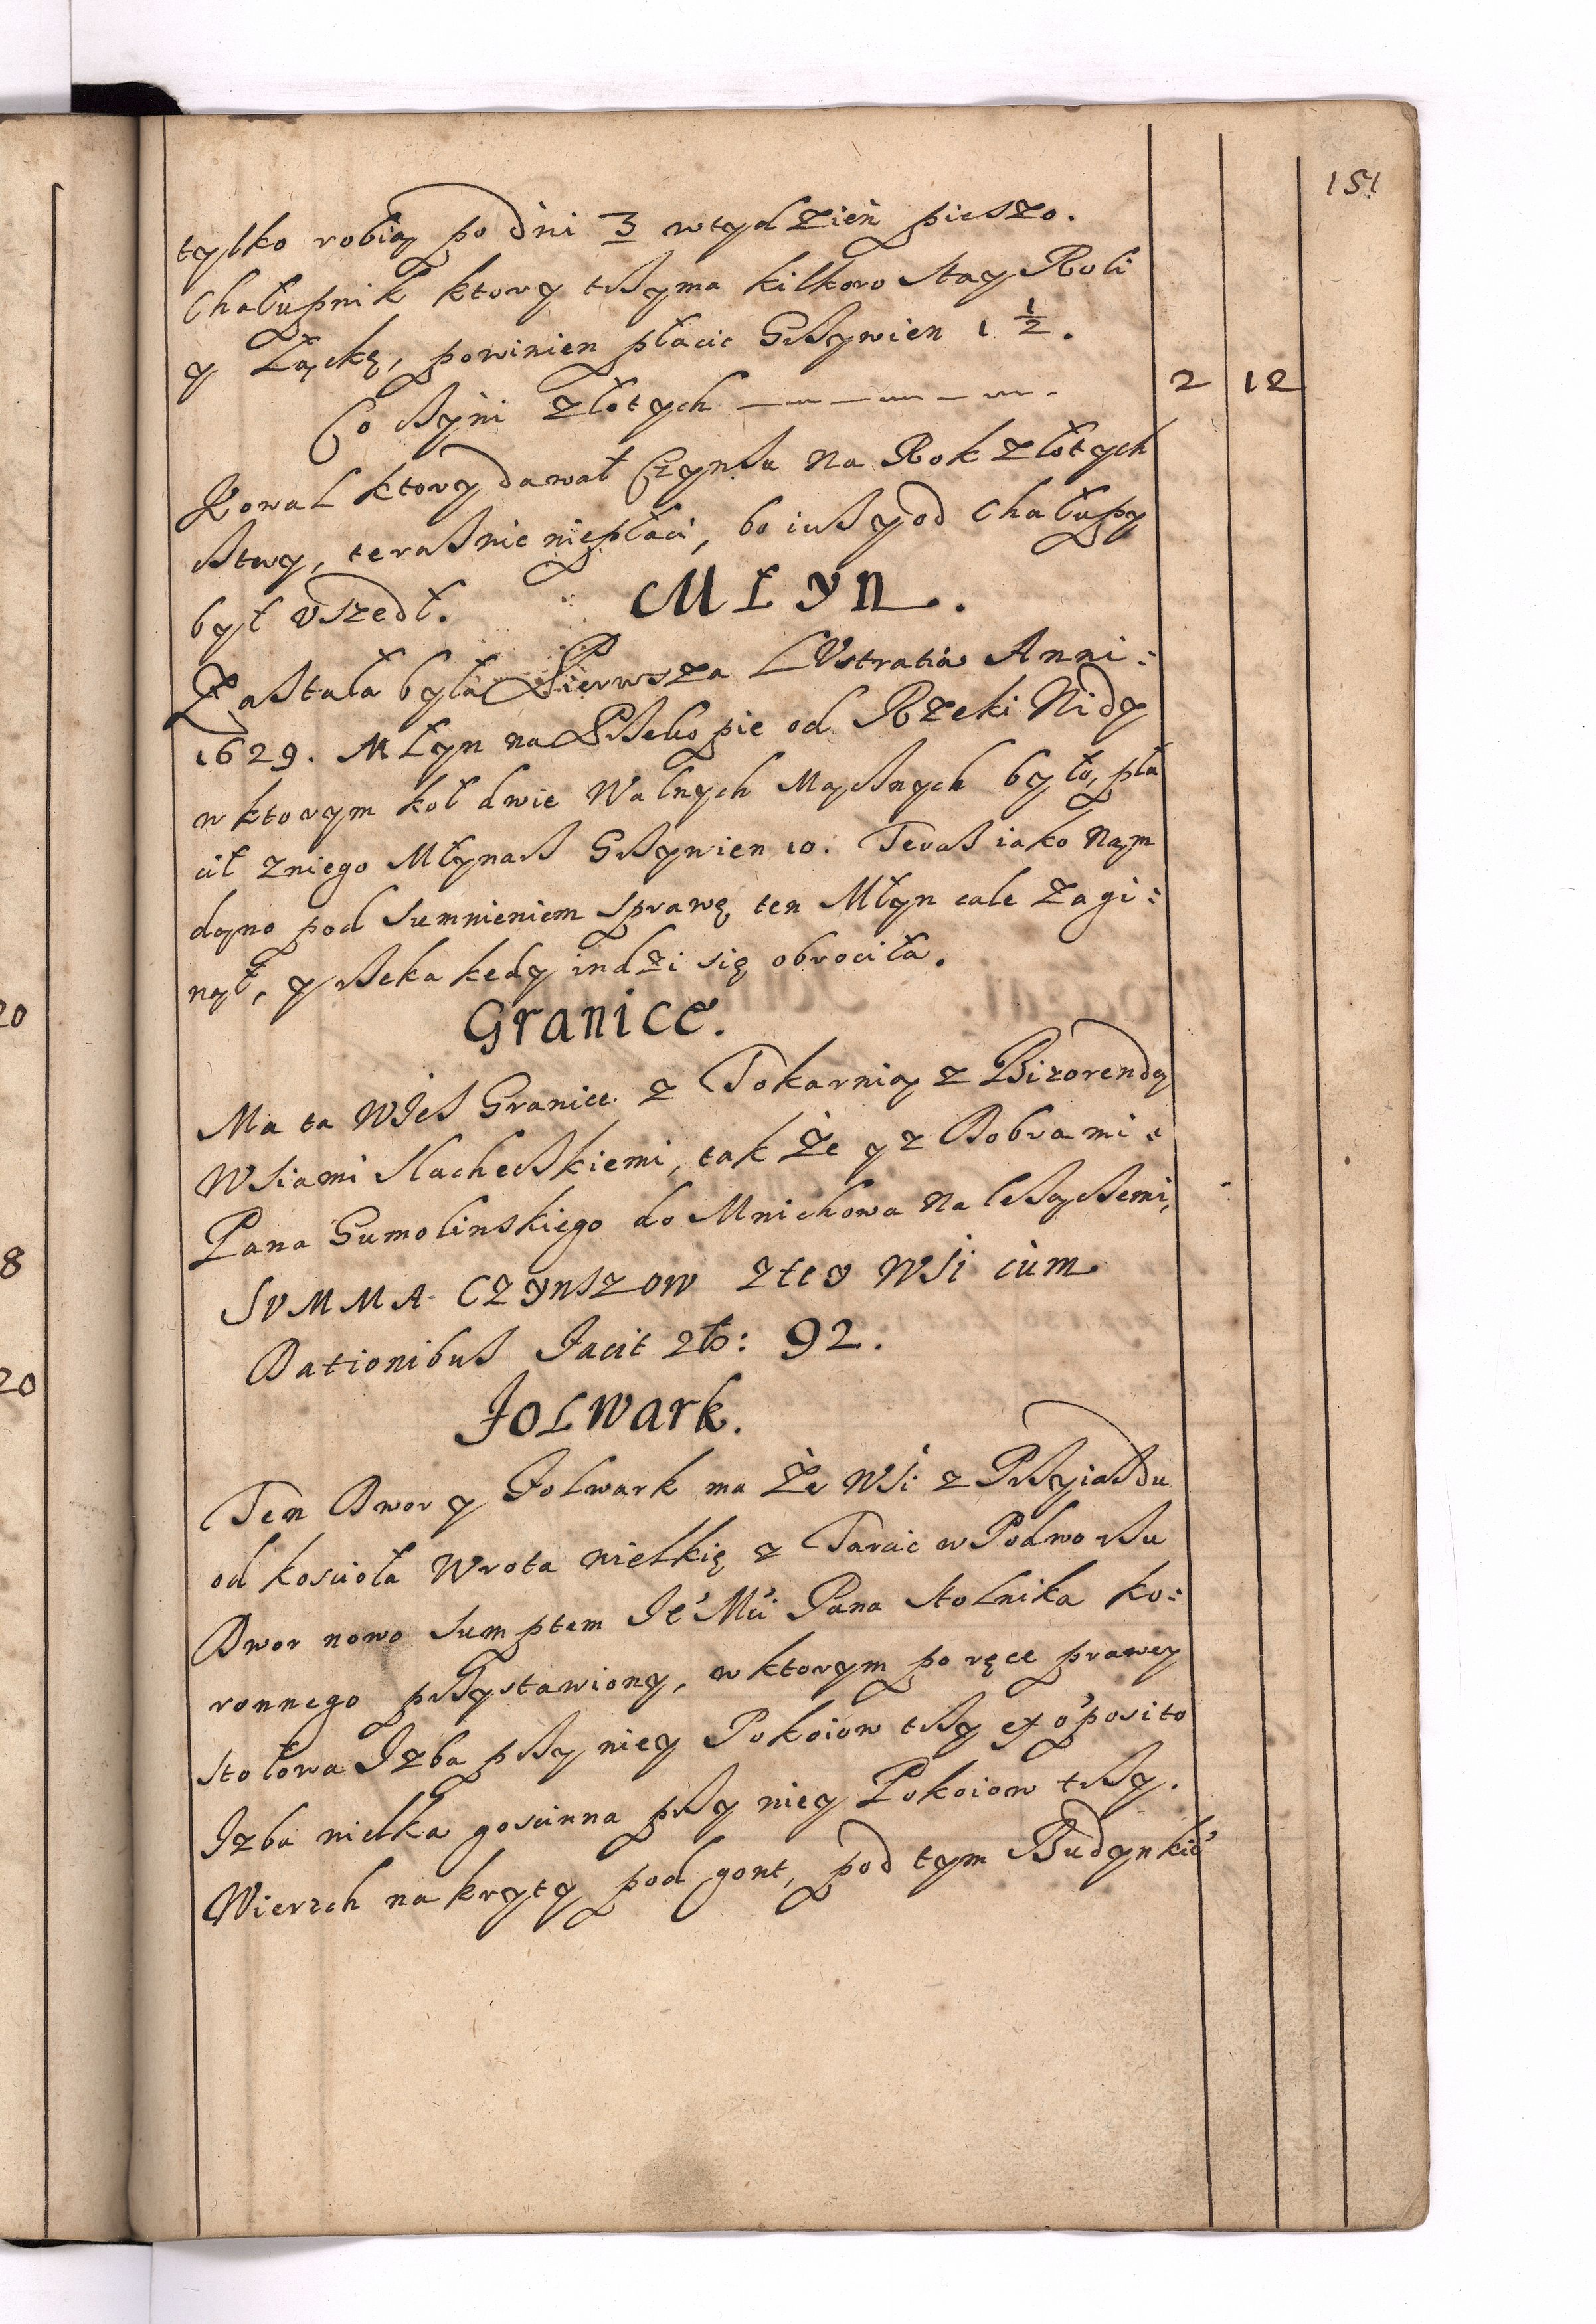 151
tylko robią po dni 3 w tydzień pieszo.
Chałupnik ktory trzyma kilkoro stay Roli
y Łąckę, powinien płacic Grzywien 1 1/2.
Co czyni złotych — — — — — — 2 12
Kowal ktory dawał Czynszu na Rok złotych
sztery, terasz nic niepłaci, bo iusz y od Chałupy
był uszedł.
MŁYN.
Zastała była Pierwsza LUstratia Anni:
1629. Młyn na Przekopie od Rzeki Nidy
w ktorym koł dwie Walnych Mącznych było, pła
cił z niego Młynarz Grzywien 10. Terasz iako nam
dano pod sumnieniem sprawę ten Młyn cale zagi:
nął, y rzeka kędy indzi się obrociła.
Granice.
Ma ta Wies Granice z Tokarnią z Bizorendą
Wsiami slacheckiemi, tak że y z Dobrami:
Pana Gumolinskiego do Mnichowa należączemi,
SUMMA CZYNSZOW z tey WSI cum
Dationibus Facit zł: 92.
FOLWark.
Ten Dwor y Folwark ma że Wśi z Przyiazdu
od kościoła Wrota wielkię z Tarcic w Podworzu
Dwor nowo sumptem Je Mci Pana Stolnika ko:
ronnego przystawiony, w ktorym po ręce prawey
stołowa Izba przy niey Pokoiow trzy ex oposito
Izba wielka goscinna przy niey Pokoiow trzy.
Wierzch na kryty pod gont, pod tym Budynkie